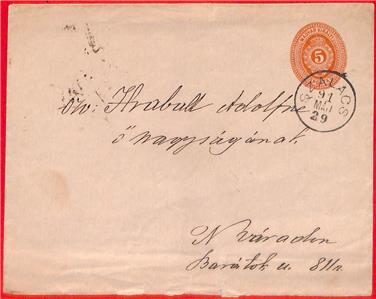 MAGYAR KIR. POSTA
5
SZALÁCS
91
MÁJ
29
özv. Hrabált Adolfné
ő nagyságának
N Váradon
Barátok u.